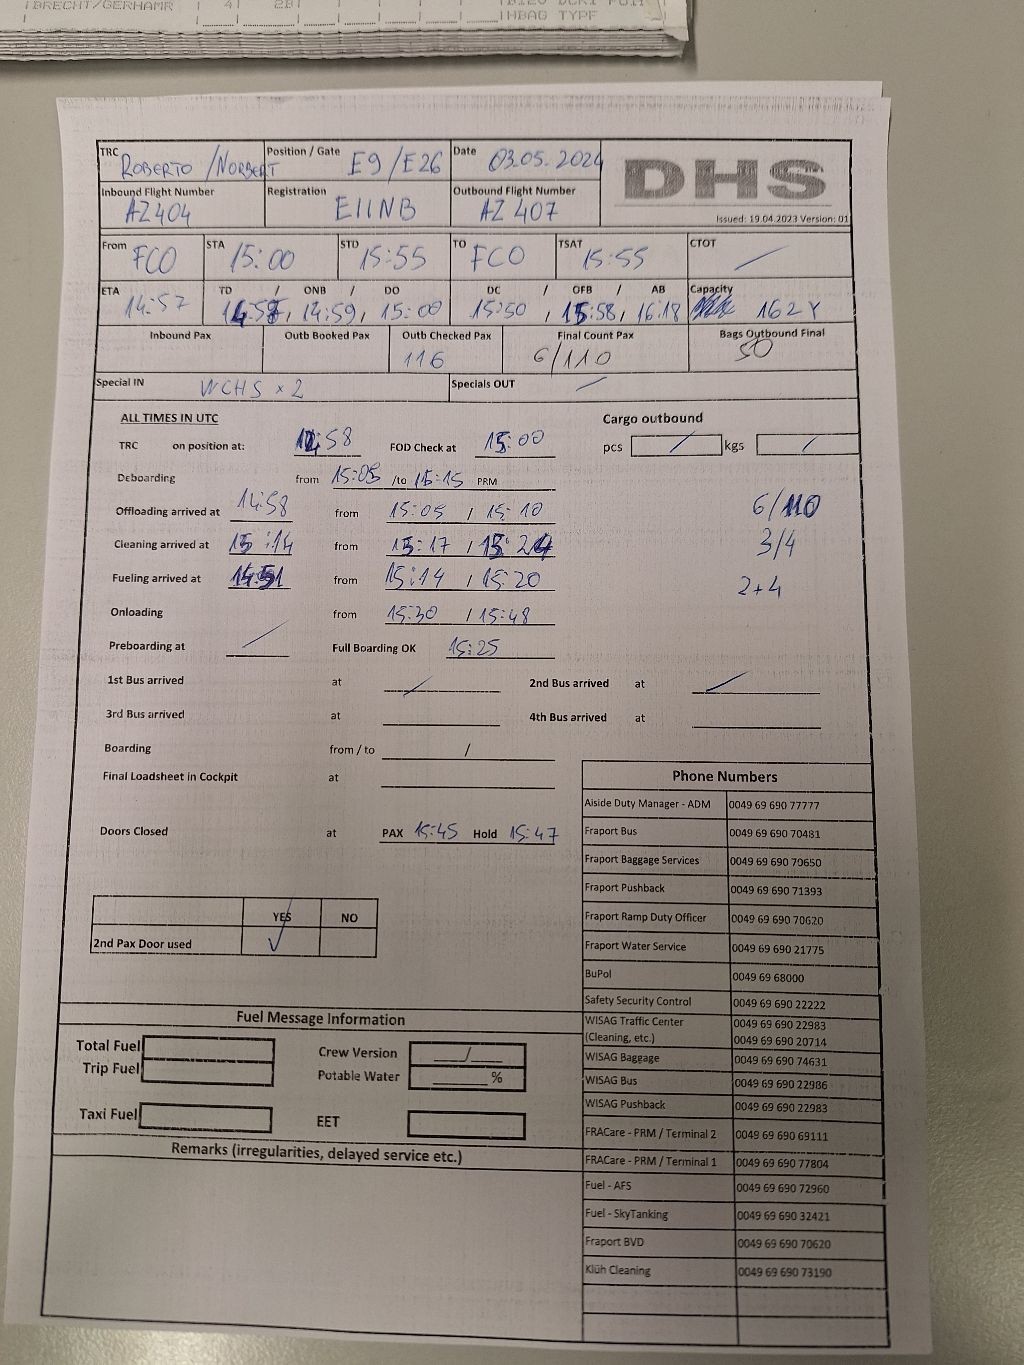 BRECHT/GERHAMR 4 2B
HBAG TYPE
TRC ROBERTO / NORBERT Position / Gate E9/E26 Date 03.05.2024 DHS
Inbound Flight Number AZ404 Registration EIINB Outbound Flight Number AZ 407
Issued: 19.04.2023 Version: 01
From FCO STA 15:00 STD 15:55 TO FCO TSAT 15:55 CTOT /
ETA 14:57 TD / ONB / DO 14:58, 14:59, 15:00 DC / OFB / AB 15:50, 15:58, 16:18 Capacity 162Y
Inbound Pax Outb Booked Pax Outb Checked Pax 116 Final Count Pax 6/110 Bags Outbound Final 50
Special IN WCHS x 2 Specials OUT /
ALL TIMES IN UTC Cargo outbound
TRC on position at: :58 FOD Check at 15:00 pcs / kgs /
Deboarding from 15:05 /to 15:15 PRM
Offloading arrived at 14:58 from 15:05 / 15:10 6/110
Cleaning arrived at 15:14 from 15:17 / 15:24 3/4
Fueling arrived at 14:51 from 15:14 / 15:20 2+4
Onloading from 15:30 / 15:48
Preboarding at / Full Boarding OK 15:25
1st Bus arrived at / 2nd Bus arrived at /
3rd Bus arrived at 4th Bus arrived at
Boarding from / to /
Final Loadsheet in Cockpit at
Doors Closed at PAX 15:45 Hold 15:47
YES NO
2nd Pax Door used ✓
Phone Numbers
Aiside Duty Manager - ADM 0049 69 690 77777
Fraport Bus 0049 69 690 70481
Fraport Baggage Services 0049 69 690 70650
Fraport Pushback 0049 69 690 71393
Fraport Ramp Duty Officer 0049 69 690 70620
Fraport Water Service 0049 69 690 21775
BuPol 0049 69 68000
Safety Security Control 0049 69 690 22222
WISAG Traffic Center 0049 69 690 22983
(Cleaning, etc.) 0049 69 690 20714
WISAG Baggage 0049 69 690 74631
WISAG Bus 0049 69 690 22986
WISAG Pushback 0049 69 690 22983
FRACare - PRM / Terminal 2 0049 69 690 69111
FRACare - PRM / Terminal 1 0049 69 690 77804
Fuel - AFS 0049 69 690 72960
Fuel - SkyTanking 0049 69 690 32421
Fraport BVD 0049 69 690 70620
Klüh Cleaning 0049 69 690 73190
Fuel Message Information
Total Fuel Crew Version ___/___
Trip Fuel Potable Water ______ %
Taxi Fuel EET
Remarks (irregularities, delayed service etc.)